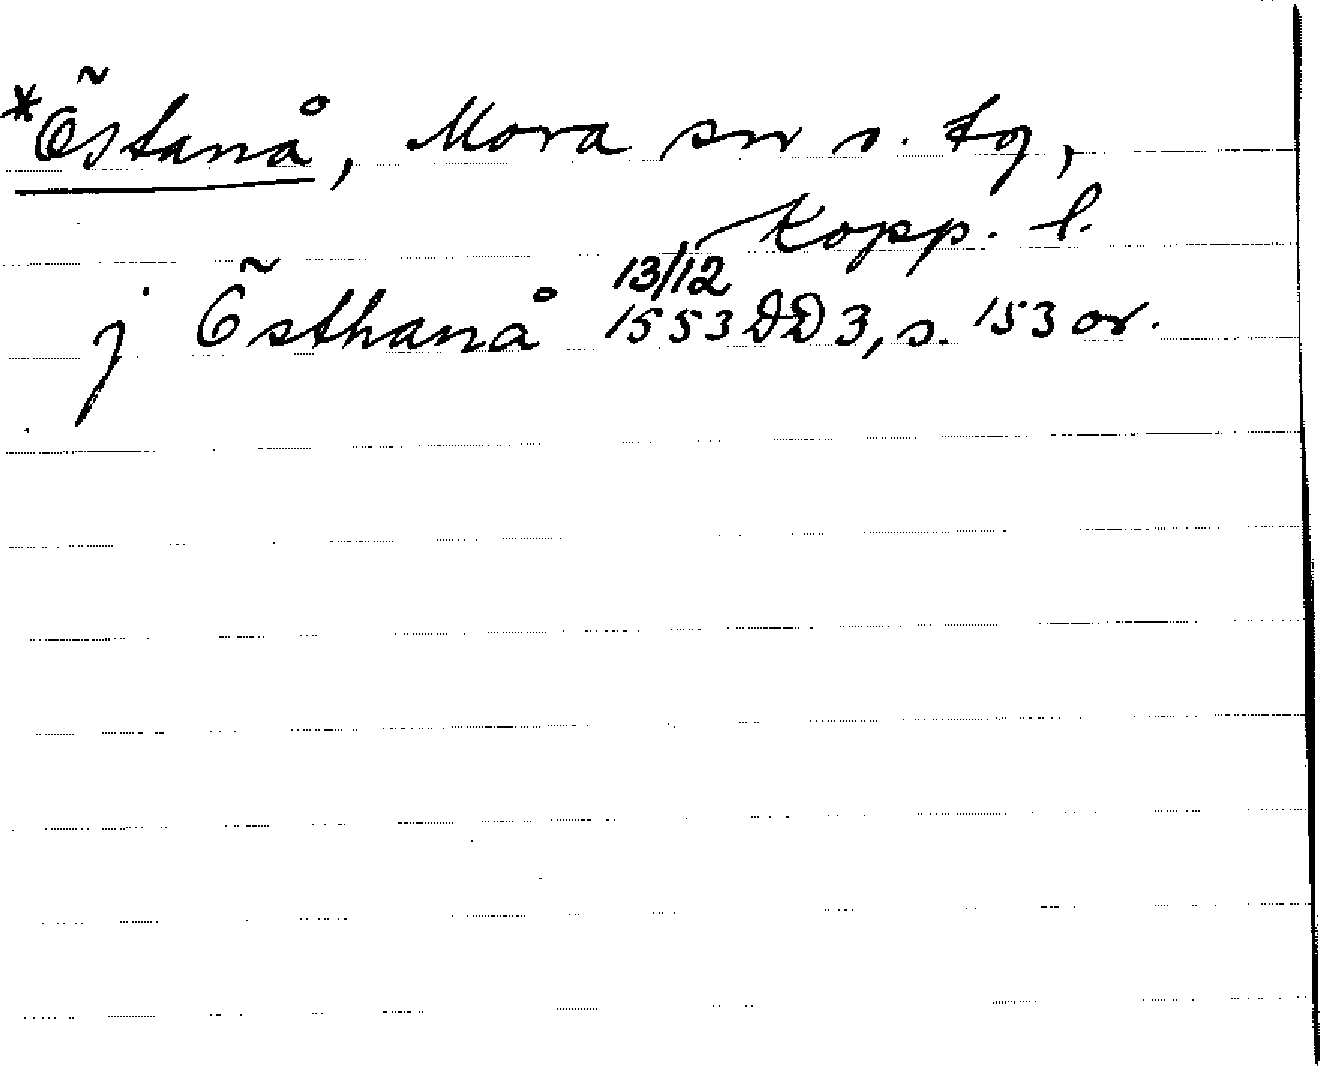 *Östanå, Mora sn o. tg,
Kopp. l.
j Östhanå 13/12 1553 DD 3, s. 153 or.